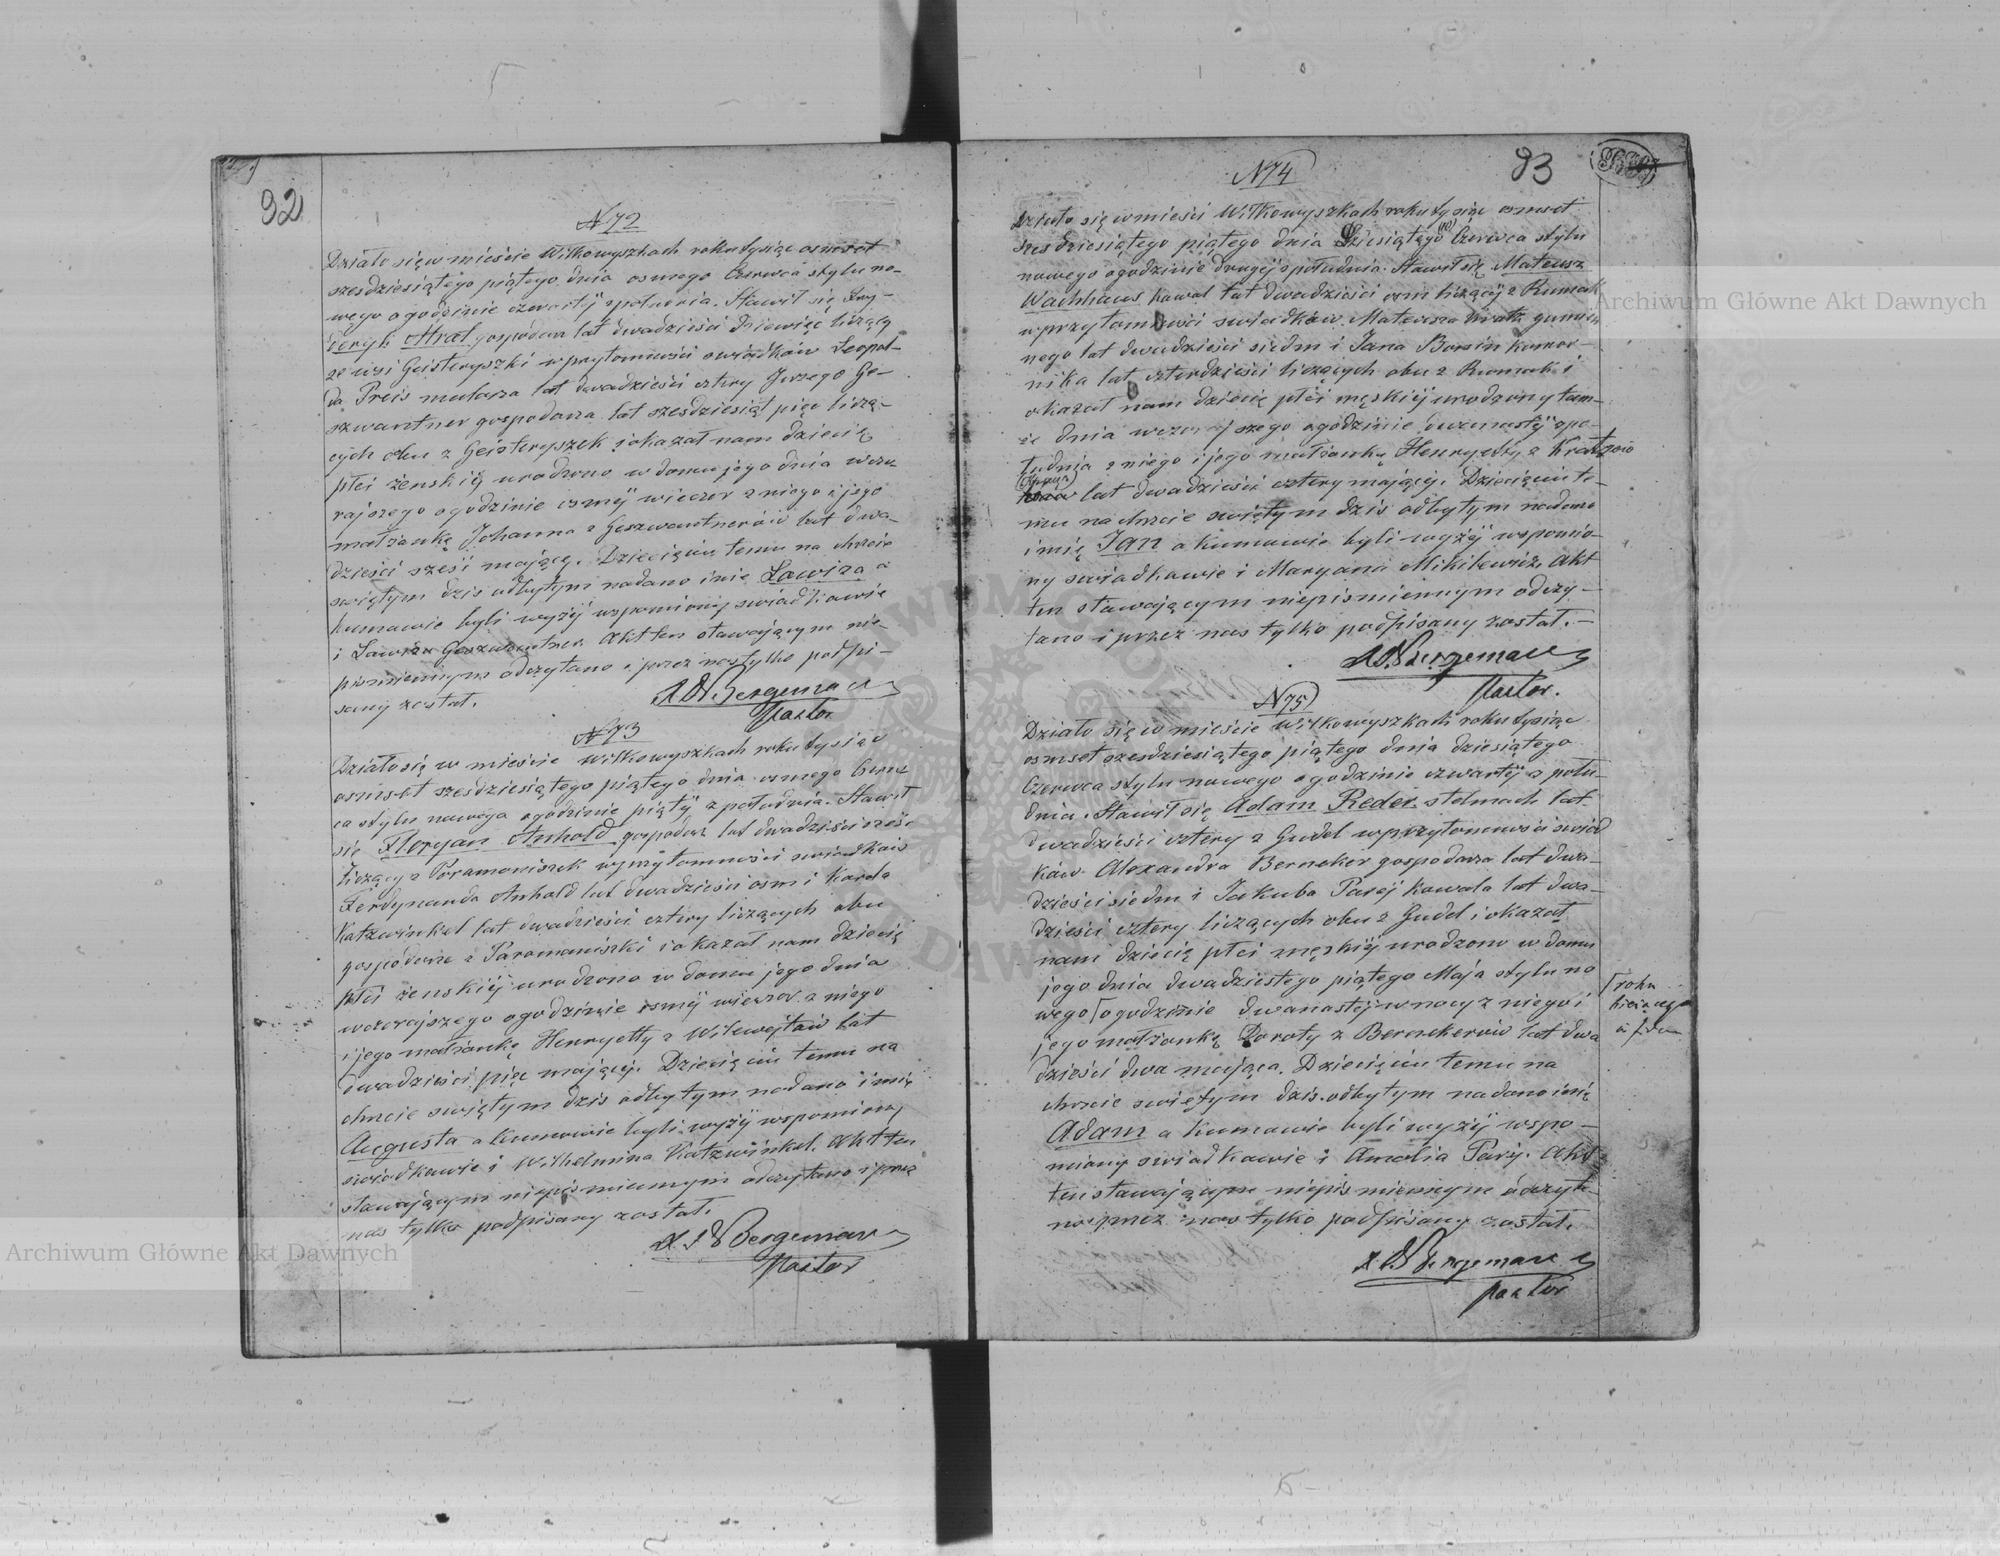 92
N 72
Działo się w mieście Wiłkowyszkach roku tysiąc osmset
szesdziesiątego piątego dnia osmego Czerwca stylu no-
wego o godzinie czwartÿ z południa. Stawił się Fry-
deryk gospodarz lat dwadzieści dziewięc liczący
ze wsi Geisteryszki w przytomności swiadków Leopol-
da Preis mularza lat dwadzieści cztery Jerzego Ge-
szwantner gospodarza lat szesdziesiąt pięc liczą-
cych obu z Geisteryszek i okazał nam dziecię
płci żenskiÿ urodzono w domu jego dnia wczo
rajszego o godzinie osmÿ wieczor z niego i jego
małżonkę Johanna z Geszwantnerów lat dwa-
dzieści sześć mającę. Dziecięciu temu na chrzcie
swiętym dzis odbytym nadano imie Lawiza a
kumowie byli wyżÿ wspomiony swiadkowie
i Lawiza Geszwantner. Akt ten stawającym nie-
pismiennym odczytano i przez nas tylko podpi-
sany został.
Bergemann
Pastor
N 73
Działo się w mieście Wiłkowyszkach roku tysiąc
osmset szesdziesiątego piątego dnia osmego Czerw
ca stylu nowego o godzinie piątÿ z południa. Stawił
się Floryan Anhold gospodarz lat dwadzieści
liczący z w przytomności swiadków
Ferdynanda Anhold lat dwadzieści osm i Karola
Katzwinkel lat dwadzieści cztery liczących obu
gospodarze z i okazał nam dziecię
płci żenskiÿ urodzono w domu jego dnia
wczorajszego o godzinie osmÿ wieczor z niego
i jego małżonkę Henryetty z lat
dwadzieści pięc mającÿ. Dziecięciu temu na
chrzcie swiętym dzis odbytym nadano imię
Augusta a kumowie byli wyżÿ wspomiony
swiadkowie i Wilhelmina Katzwinkel. Akt ten
stawającym niepismiennym odczytano i przez
nas tylko podpisany został.
Bergemann
Pastor
93
N 74
Działo się w mieści Wiłkowyszkach roku tysiąc osmset
szesdziesiątego piątego dnia Dziesiątego Czerwca stylu
nowego o godzinie drugiÿ z południa. Stawił się Mateusz
Wachhaus kowal lat dwadzieści osm liczący z
w przytomności swiadków Mateusza
nego lat dwadzieści siedm i Jana komor-
nika lat czterdzieści liczących obu z i
okazał nam dziecię płci męskiÿ urodzony tam-
że dnia wczorajszego o godzinie dwunastÿ z po-
łudnia z niego i jego małżonkę Henryetty z
lat dwadzieści cztery mającÿ. Dziecięciu te-
mu na chrzcie swiętym dzis odbytym nadano
imię Jan a kumowie byli wyżÿ wspomio-
ny swiadkowie i Maryana Mikilewicz. Akt
ten stawającym niepismiennym odczy-
tano i przez nas tylko podpisany został.
Bergemann
Pastor.
N 75
Działo się w mieście Wiłkowyszkach roku tysiąc
osmset szesdziesiątego piątego dnia dziesiątego
Czerwca stylu nowego o godzinie czwartÿ z połu-
dnia. Stawił się Adam Reder stelmach lat
dwadzieści cztery z Gudel w przytomności swiad
ków Alexandra Berneker gospodarza lat dwa-
dzieści siedm i Jakuba kowala lat dwa-
dzieści cztery liczących obu z Gudel i okazał
nam dziecię płci męskiÿ urodzono w domu
jego dnia dwadziestego piątego Maja stylu no
wego o godzinie dwanastÿ w nocy z niego i
roku
bieżącego
jego małżonką Doroty z Bernekerów lat dwa
dzieści dwa mająca. Dziecięciu temu na
chrzcie swiętym dzis odbytym nadano imię
Adam a kumowie byli wyżÿ wspo-
miony swiadkowie i Amalia Akt
ten stawającym niepismiennym odczyta-
no i przez nas tylko podpisany został.
Bergemann
Pastor
Archiwum Główne Akt Dawnych
Archiwum Główne Akt Dawnych